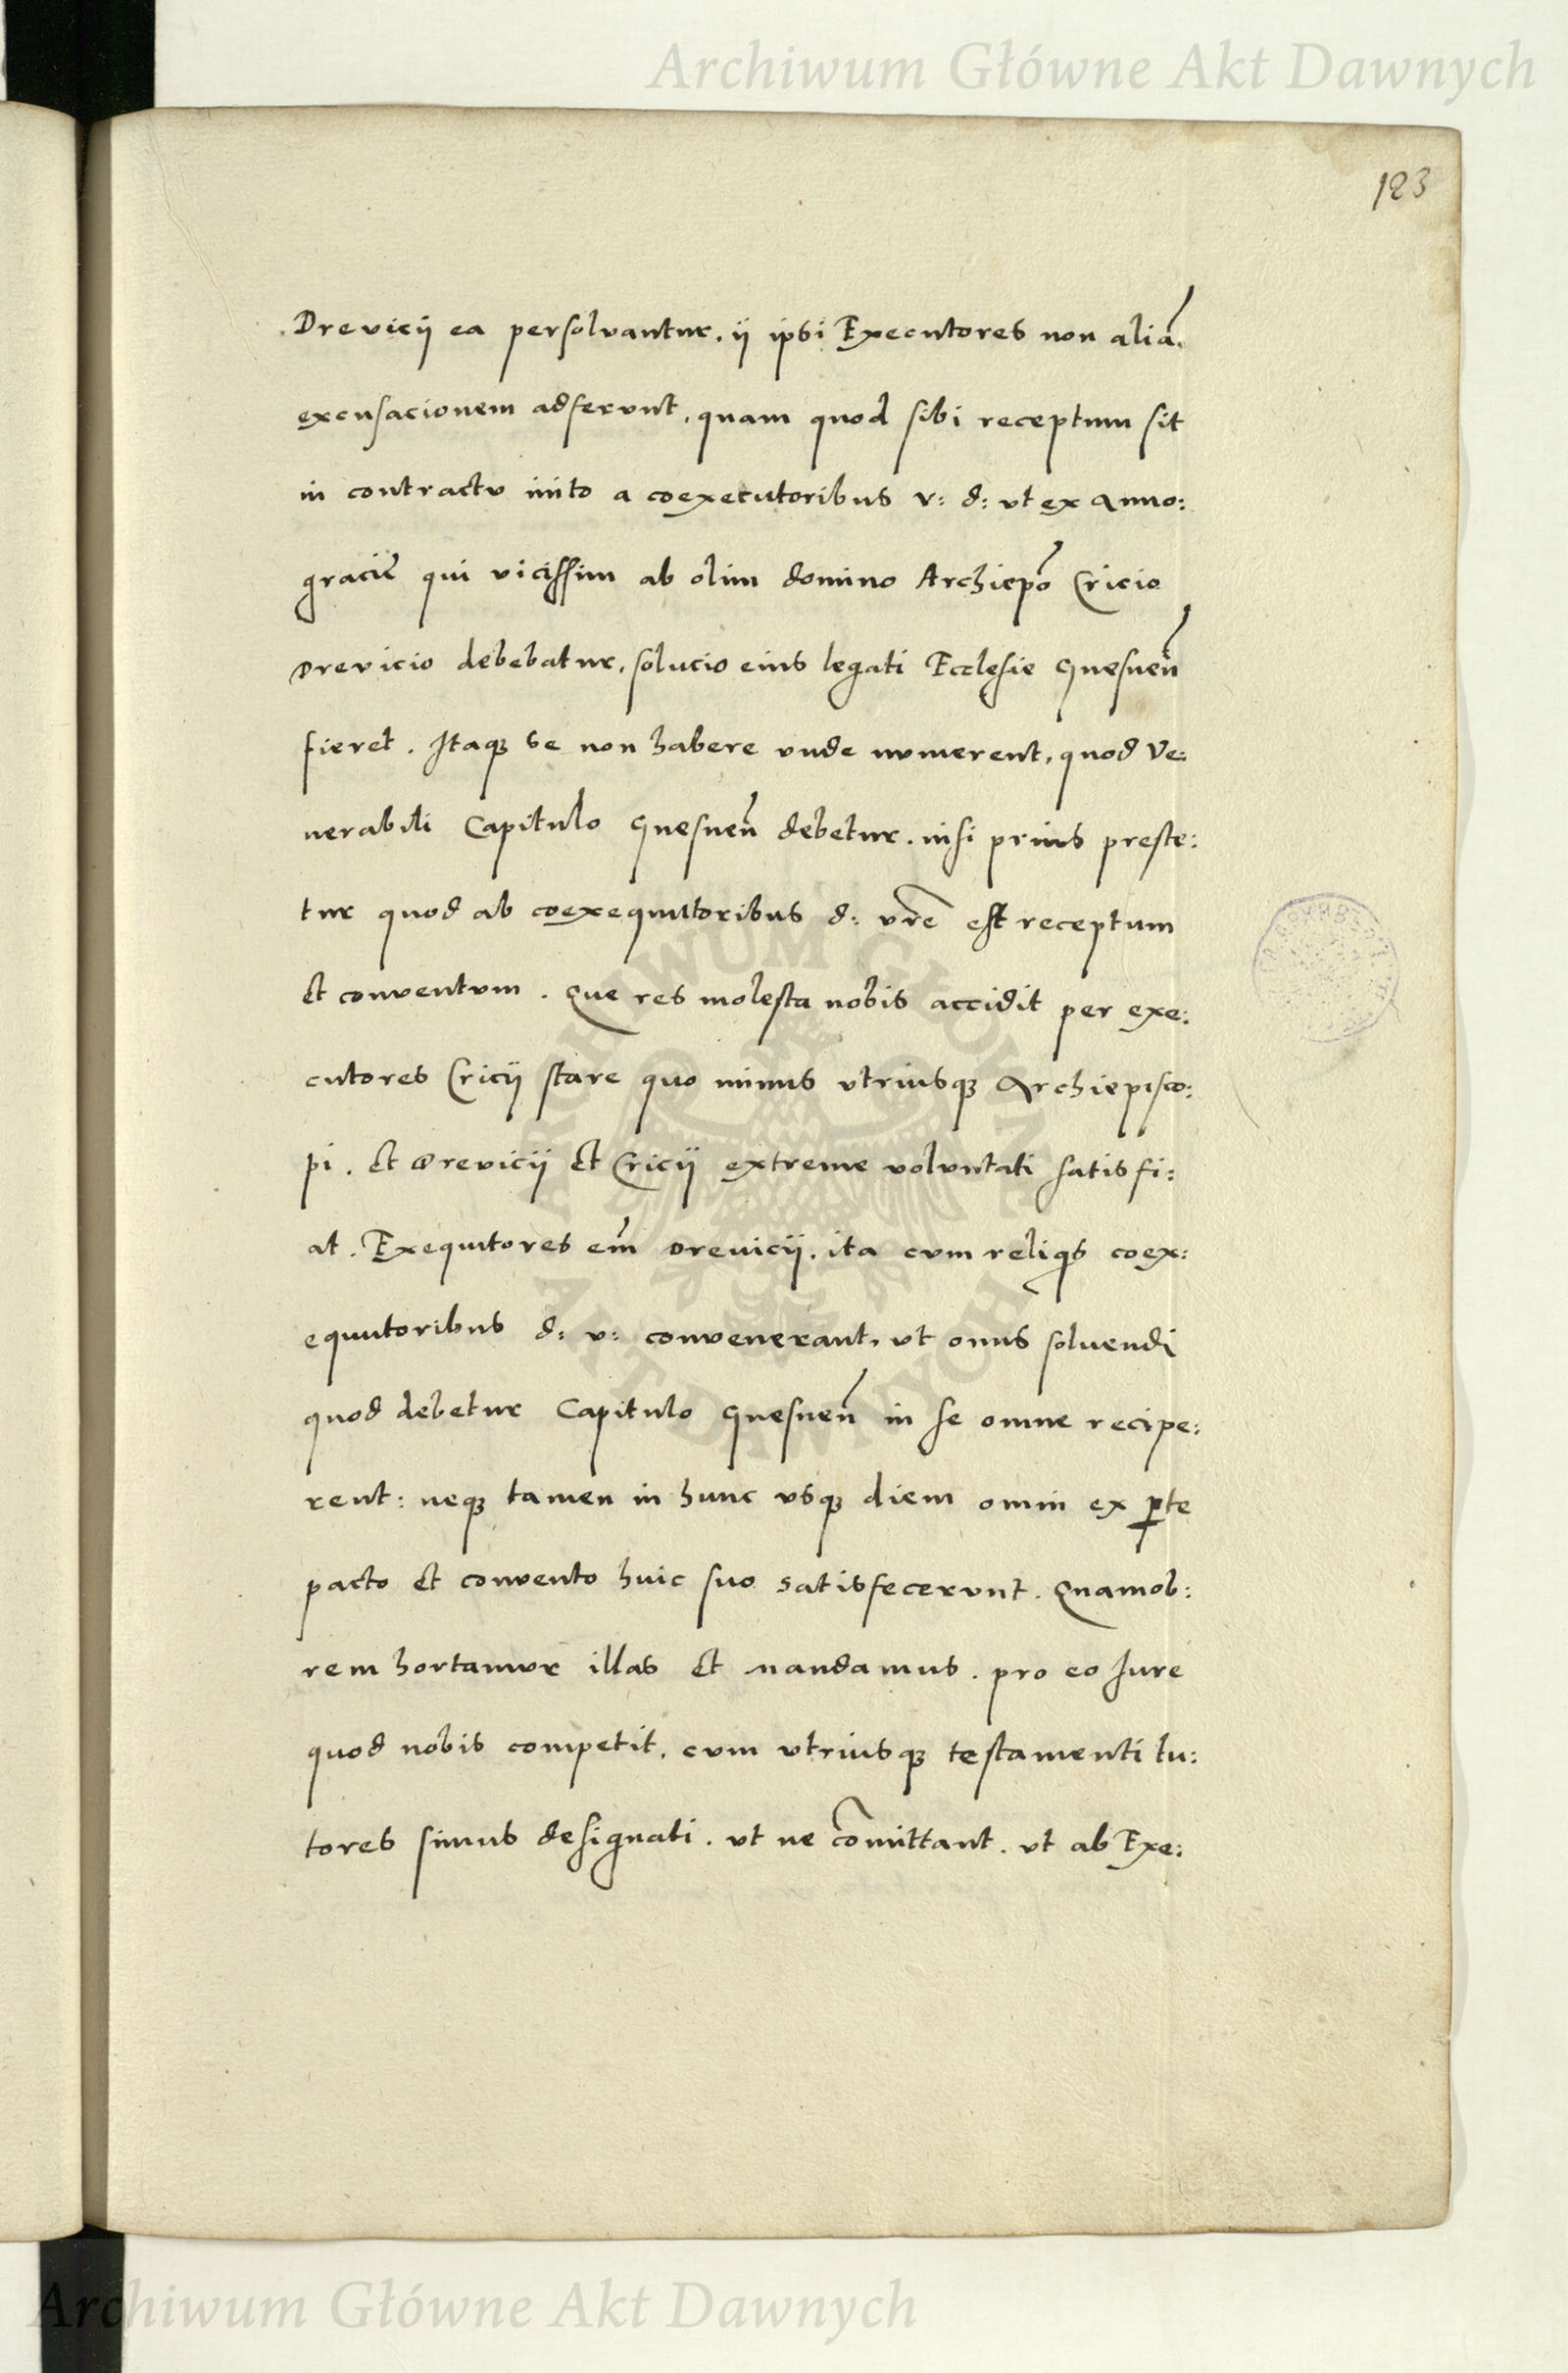 Archiwum Główne Akt Dawnych
123
Drevicij ea persolvantur. ij ipsi Executores non aliã.
excusacionem adferunt. quam quod sibi receptum sit
in contractu inito a coexecutoribus v: d: vt ex Anno:
gracie qui vicissim ab olim domino Archiepõ Cricio
Drevicio debebatur, solucio eius legati Ecclesie Gnesneñ
fieret. Itaqꝫ se non habere unde numerent, quod Ve:
nerabili Capitulo Gnesneñ debetur. nisi prius preste:
tur quod ab coexequutoribus d: vrẽ est receptum
et conventum. Que res molesta nobis accidit per exe:
cutores Cricij stare quo minus vtriusqꝫ Archiepisco:
pi. Et Drevicij Et Cricij extreme voluntati satisfi:
at. Exequutores em̃ Drevicij. ita cum reliqs coex:
equutoribus d: v: convenerant, vt onus solvendi
quod debetur Capitulo Gnesneñ in se omne recipe:
rent: neqꝫ tamen in hunc vsqꝫ diem omni ex ꝑte
pacto et convento huic suo satisfecerunt. Quamob:
rem hortamur illas Et mandamus. pro eo Iure
quod nobis competit. cum vtriusqꝫ testamenti tu:
tores simus designati. vt ne cõmittant. vt ab Exe:
ARCHIWUM GŁÓWNE
AKT DAWNYCH
Archiwum Główne Akt Dawnych